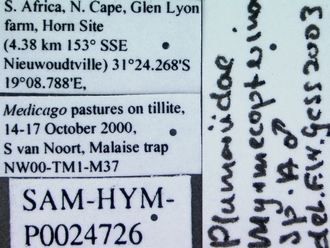 S. Africa, N. Cape, Glen Lyon
farm, Horn Site
(4.38 km 153° SSE
Nieuwoudtville) 31°24.268'S
19°08.788'E,
Medicago pastures on tillite,
14-17 October 2000,
S van Noort, Malaise trap
NW00-TM1-M37
SAM-HYM-
P0024726
Plumariidae
Myrmecopterina
sp. A ♂
det. F.W. Gess 2003